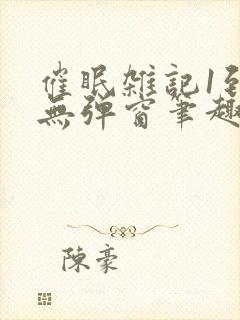 催眠雑記1至
無弹窗筆趣
陳豪